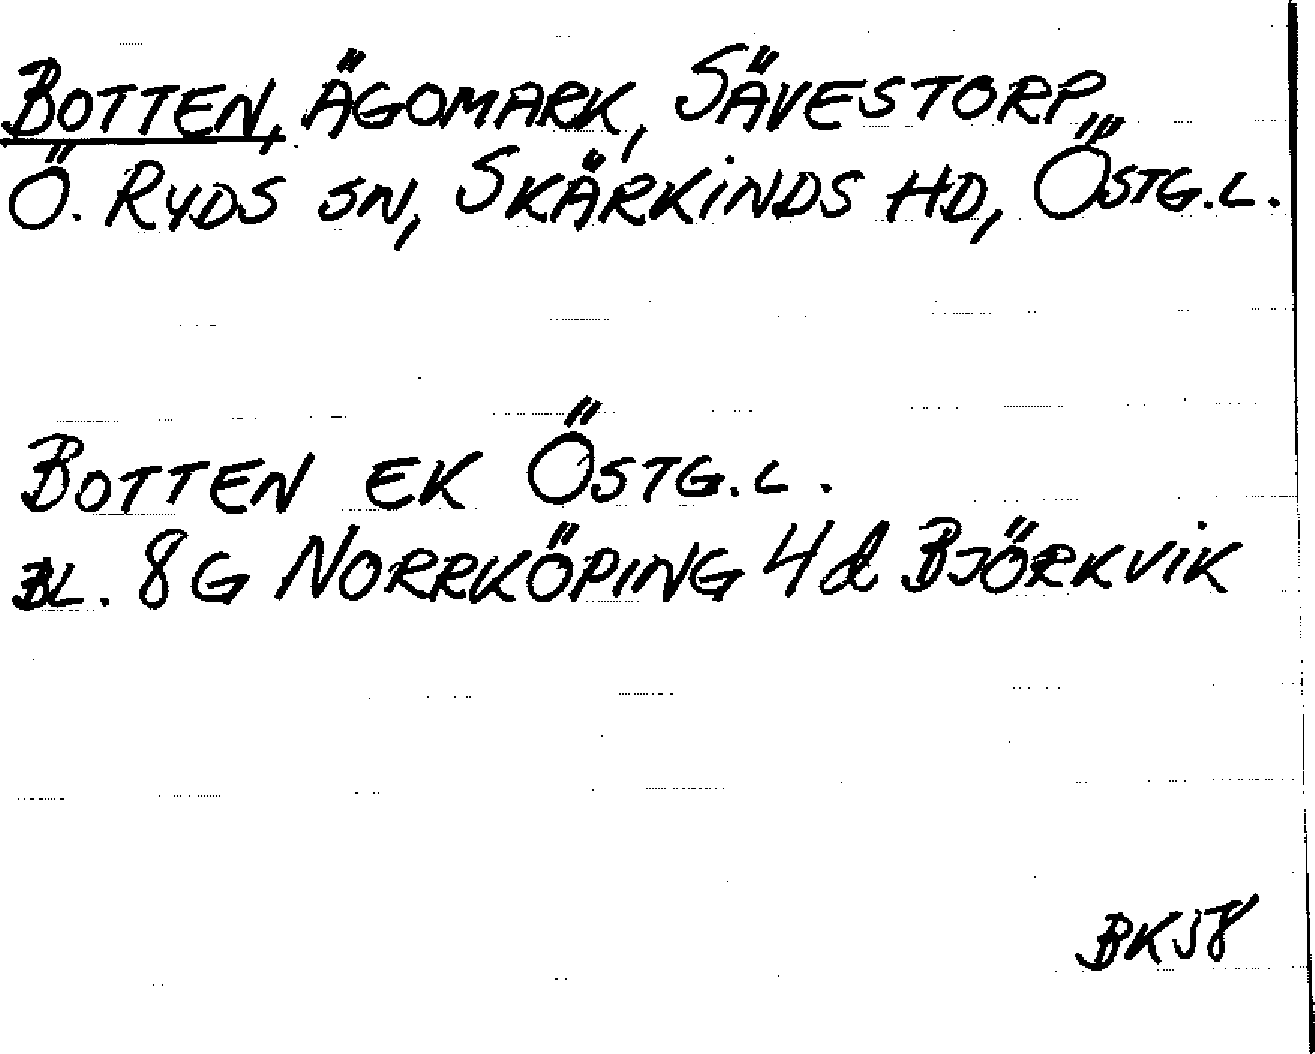 BOTTEN, ÄGOMARK, SÄVESTORP,
Ö. RYDS SN, SKÄRKINDS HD, ÖSTG.L.
BOTTEN EK ÖSTG.L.
BL. 8G NORRKÖPING 4d BJÖRKVIK
BK58